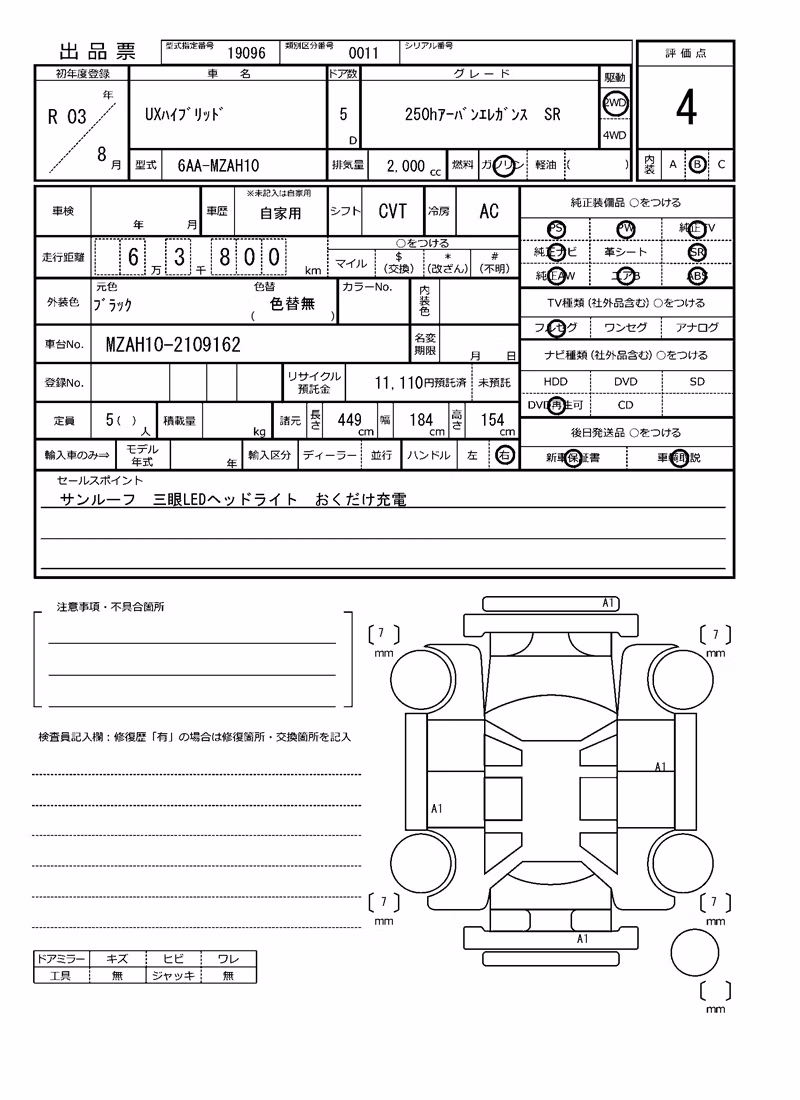 出品票 型式指定番号 19096 類別区分番号 0011 シリアル番号
評価点
初年度登録 車名 ドア数 グレード 駆動
R 03 年 8 月
UXハイブリッド 5 D 250hアーバンエレガンス SR 2WD 4WD
4
型式 6AA-MZAH10 排気量 2,000 cc 燃料 ガソリン 軽油 ( )
内装 A B C
車検 年 月 車歴 ※未記入は自家用 自家用 シフト CVT 冷房 AC
純正装備品 ○をつける
PS PW 純正TV
純正ナビ 革シート SR
純正AW エアB ABS
走行距離 6 万 3 千 8 0 0 km
○をつける
マイル $(交換) *(改ざん) #(不明)
外装色 元色 ブラック 色替 色替無 ( ) カラーNo. 内装色
TV種類(社外品含む)○をつける
フルセグ ワンセグ アナログ
車台No. MZAH10-2109162 名変期限 月 日
ナビ種類(社外品含む)○をつける
HDD DVD SD
DVD再生可 CD
登録No. リサイクル預託金 11,110円預託済 未預託
定員 5( )人 積載量 kg 諸元 長さ 449 cm 幅 184 cm 高さ 154 cm
後日発送品 ○をつける
新車保証書 車輌取説
輸入車のみ⇒ モデル年式 年 輸入区分 ディーラー 並行 ハンドル 左 右
セールスポイント
サンルーフ 三眼LEDヘッドライト おくだけ充電
注意事項・不具合箇所
検査員記入欄：修復歴「有」の場合は修復箇所・交換箇所を記入
A1
7 mm
7 mm
A1
A1
7 mm
7 mm
A1
mm
ドアミラー キズ ヒビ ワレ
工具 無 ジャッキ 無